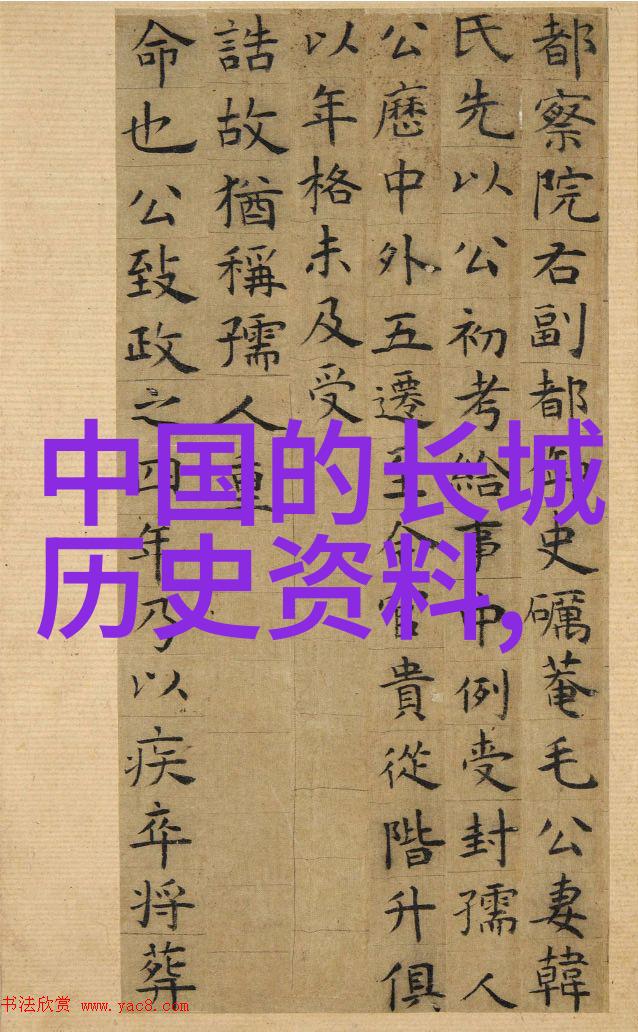 都察院右副都御史礪菴毛公妻韓
氏先以公初考給事中例受封孺人
公歷中外五遷至今官貴從階升俱
以年格未及受
誥故猶稱孺人重
命也公致政之四年乃以疾卒将葬
中国的长城
历史资料,
书法欣赏 www.yac8.com